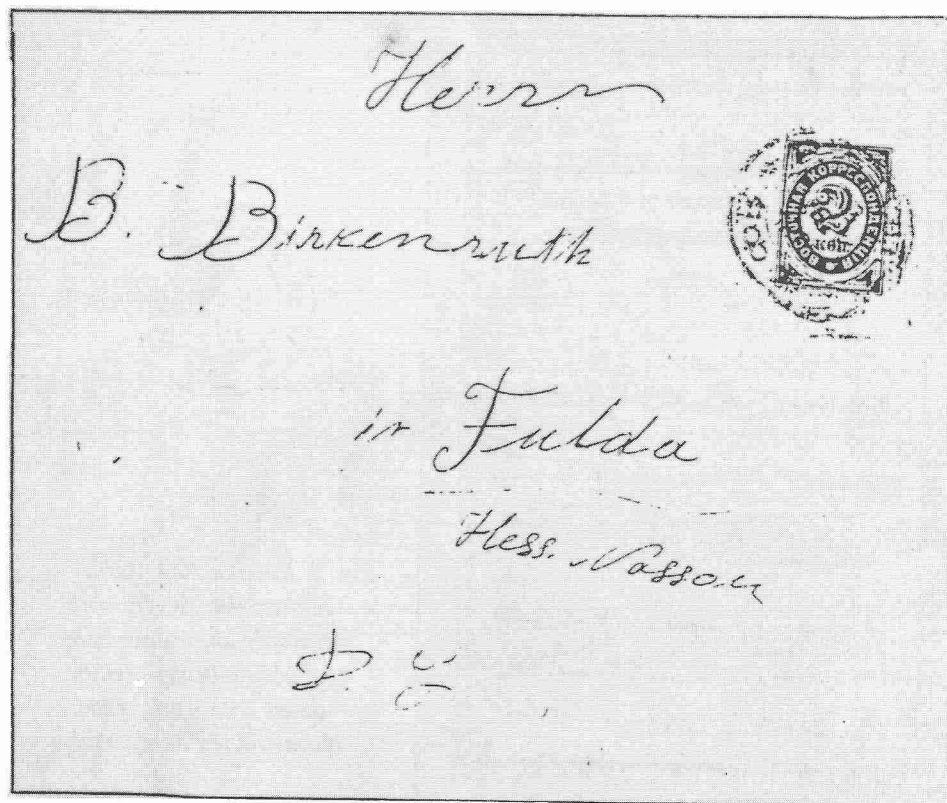 Herrn
B. Birkenruth
ВОСТОЧНАЯ КОРРЕСПОНДЕНЦІЯ
КОП.
in Fulda
Hess. Nassau